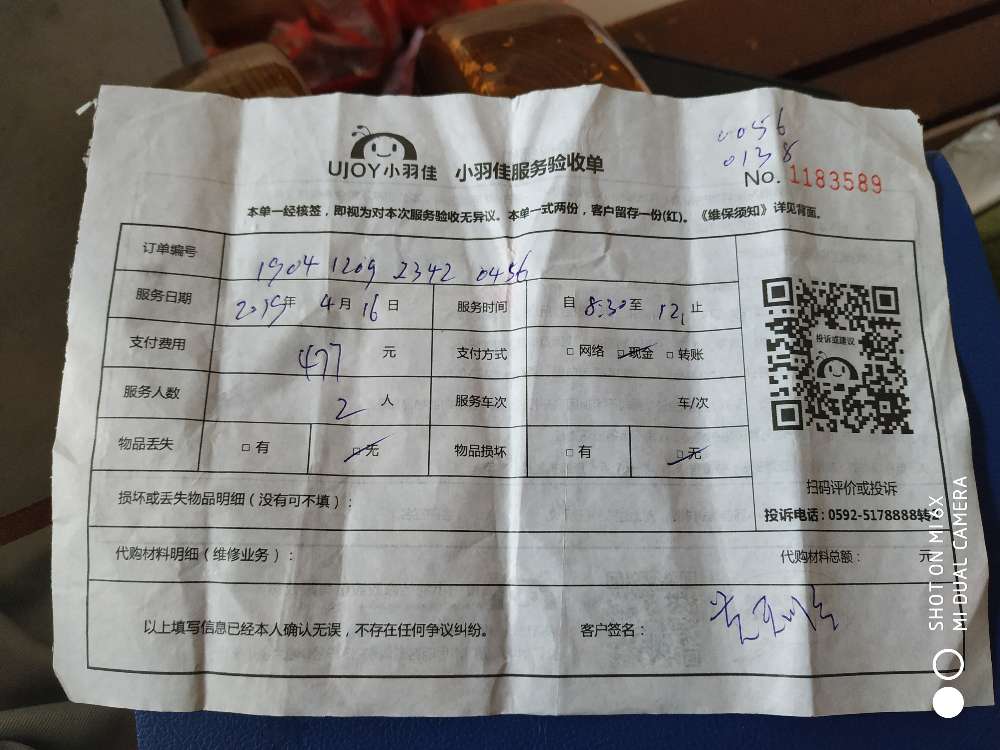 0056
0138
UJOY小羽佳 小羽佳服务验收单
No. 1183589
本单一经核签，即视为对本次服务验收无异议。本单一式两份，客户留存一份(红)。《维保须知》详见背面。
订单编号 1904 1209 2342 0456
服务日期 2019年 4月16日 服务时间 自 8:30 至 12 止
支付费用 477 元 支付方式 □ 网络 □ 现金 □ 转账
服务人数 2 人 服务车次 车/次
物品丢失 □ 有 □ 无 物品损坏 □ 有 □ 无
投诉或建议
扫码评价或投诉
损坏或丢失物品明细（没有可不填）：
投诉电话：0592-5178888转
代购材料明细（维修业务）： 代购材料总额： 元
以上填写信息已经本人确认无误，不存在任何争议纠纷。 客户签名：
SHOT ON MI 6X
MI DUAL CAMERA